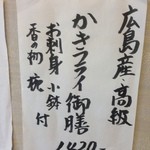 広島産・高級
かきフライ御膳
お刺身 小鉢 付
香の物 椀
1420